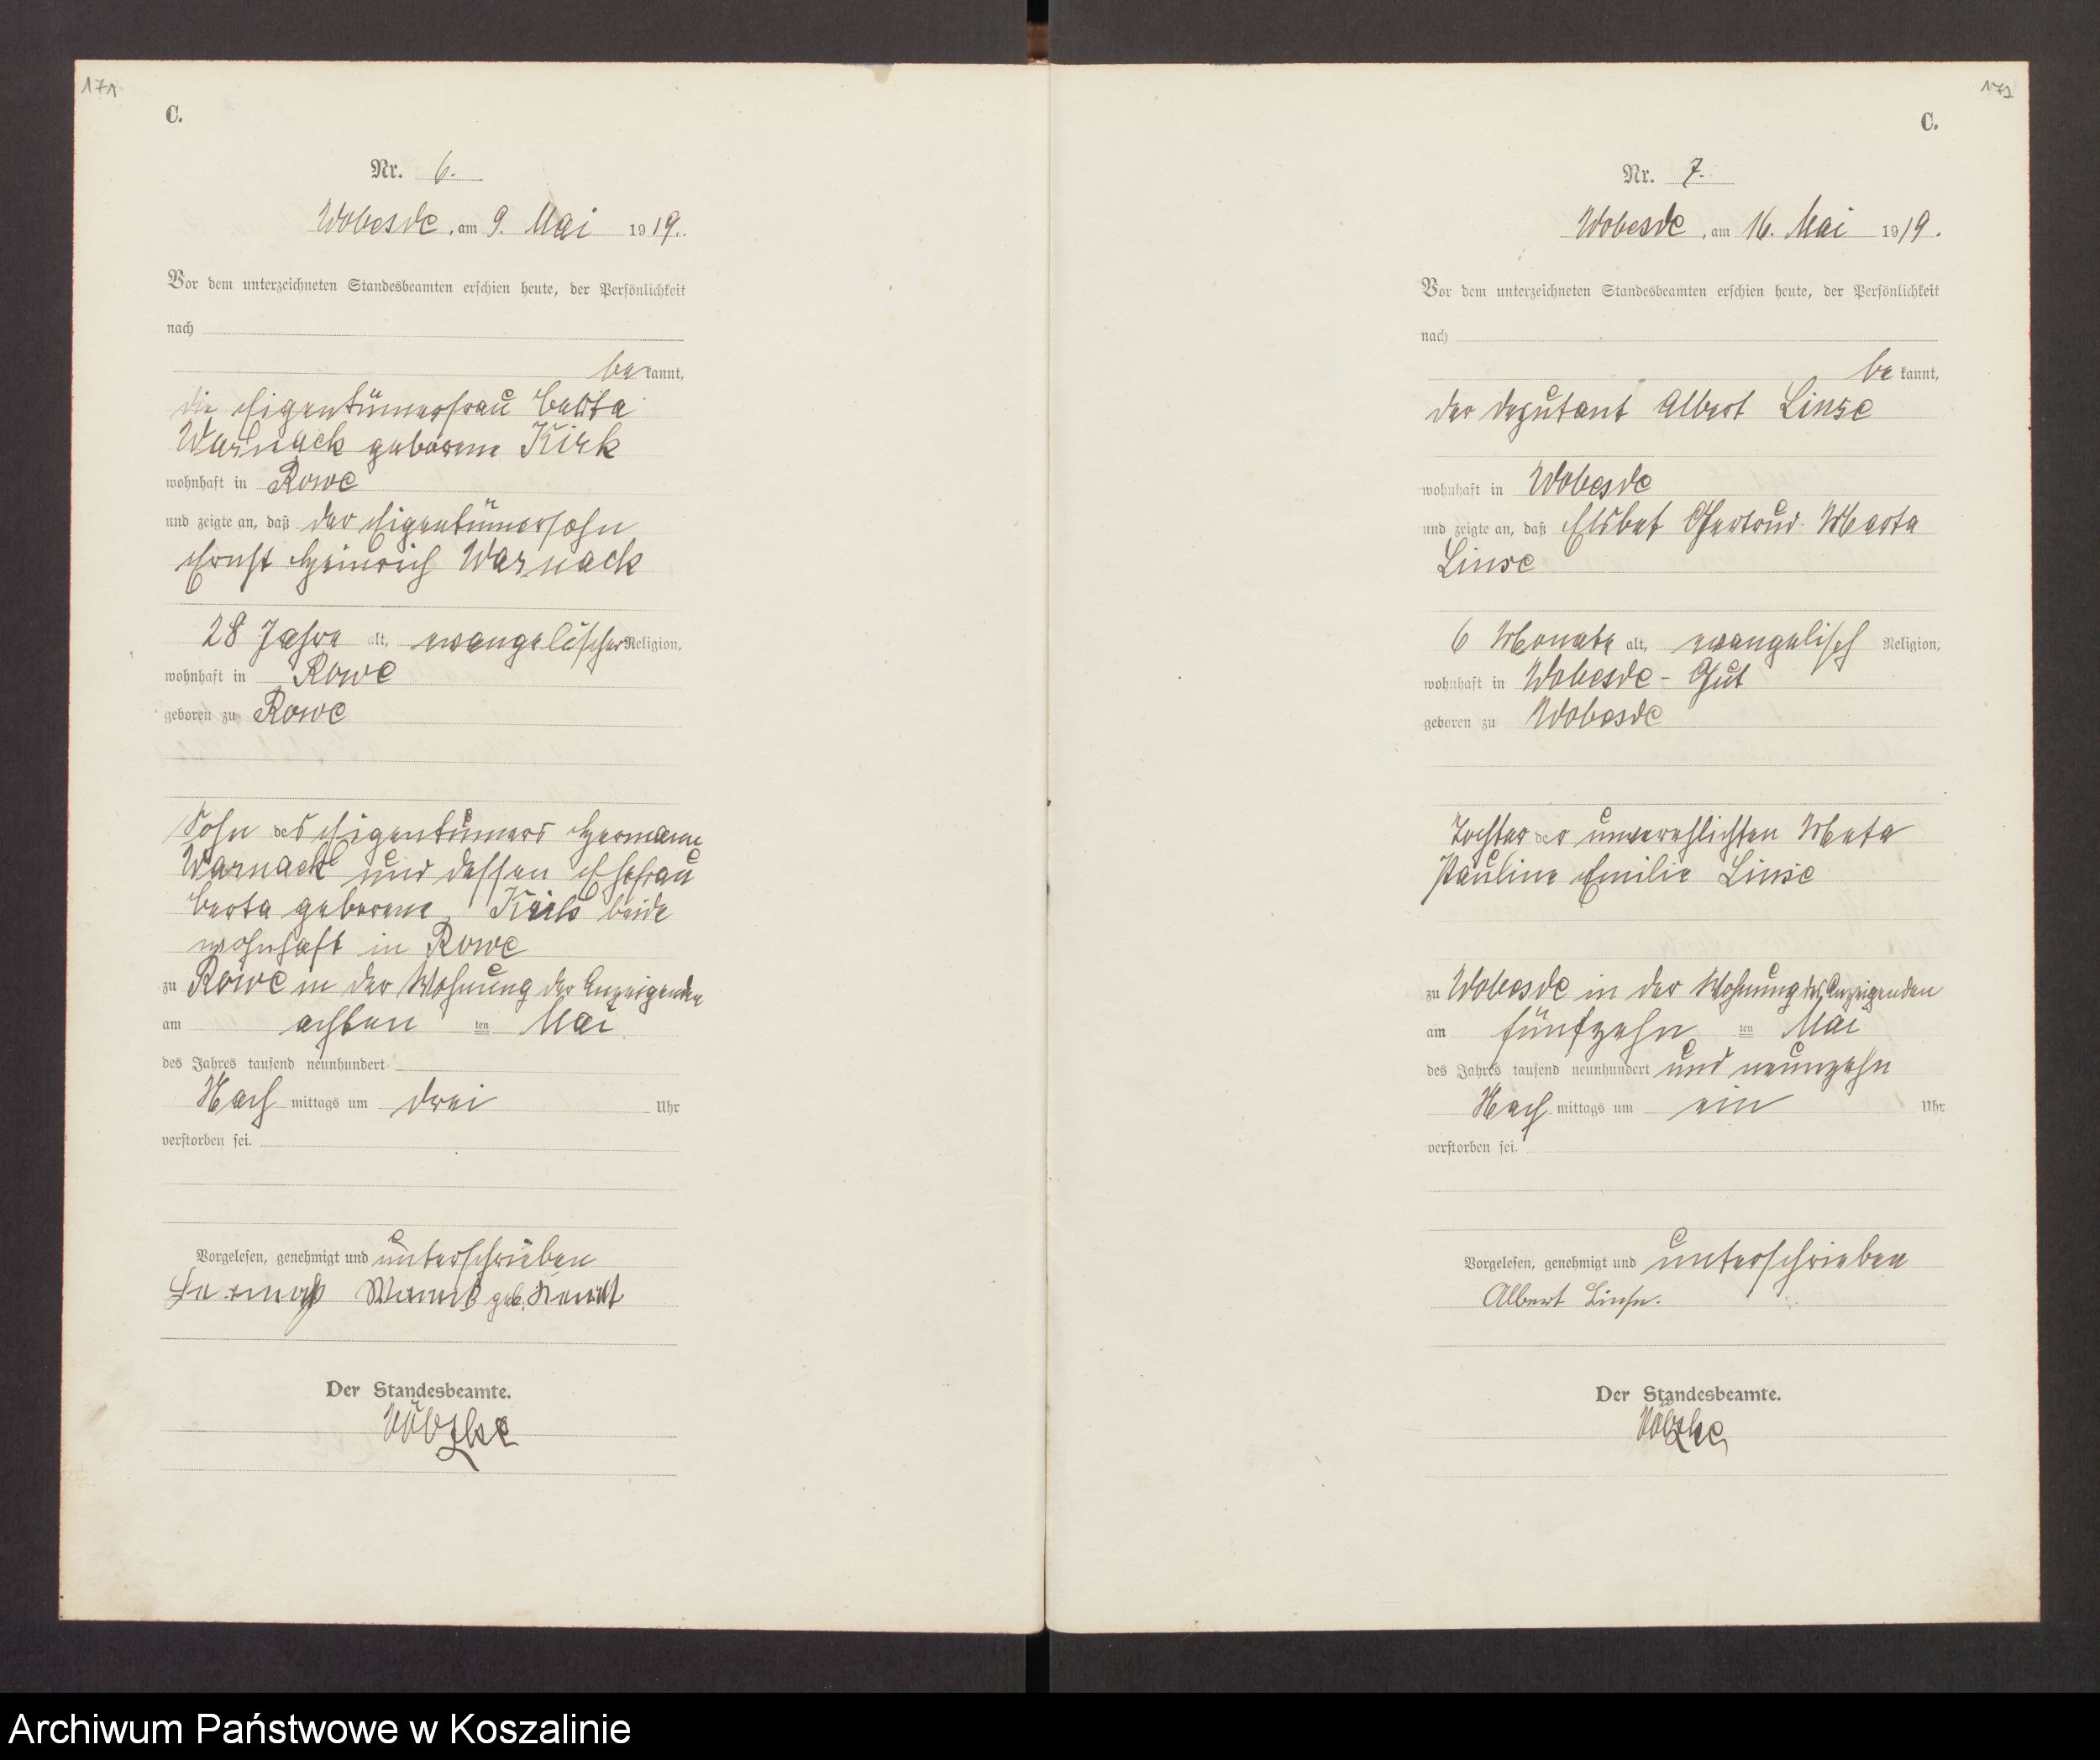 171
C.
Nr. 6.
Wobesde, am 9. Mai 1919.
Vor dem unterzeichneten Standesbeamten erschien heute, der Persönlichkeit
nach
bekannt,
die Eigentümerfrau Berta
Warnack geborene Kirk
wohnhaft in Rowe
und zeigte an, daß der Eigentümersohn
Ernst Heinrich Warnack
28 Jahre alt, evangelischer Religion,
wohnhaft in Rowe
geboren zu Rowe
Sohn des Eigentümers Hermann
Warnack und dessen Ehefrau
Berta geborene beide
wohnhaft in Rowe
zu Rowe in der Wohnung der Anzeigenden
am achten ten Mai
des Jahres tausend neunhundert
Nachmittags um drei Uhr
verstorben sei.
Vorgelesen, genehmigt und unterschrieben
geb.
Der Standesbeamte.
172
C.
Nr. 7.
Wobesde, am 16. Mai 1919.
Vor dem unterzeichneten Standesbeamten erschien heute, der Persönlichkeit
nach
bekannt,
der Deputant Albert Linse
wohnhaft in Wobesde
und zeigte an, daß Elsbet Gertrud Marta
Linse
6 Monate alt, evangelisch Religion,
wohnhaft in Wobesde - Gut
geboren zu Wobesde
Tochter der unverehlichten Meta
Pauline Emilie Linse
zu Wobesde in der Wohnung des Anzeigenden
am fünfzehn ten Mai
des Jahres tausend neunhundert und neunzehn
Nachmittags um ein Uhr
verstorben sei.
Vorgelesen, genehmigt und unterschrieben
Albert Linse.
Der Standesbeamte.
Archiwum Państwowe w Koszalinie